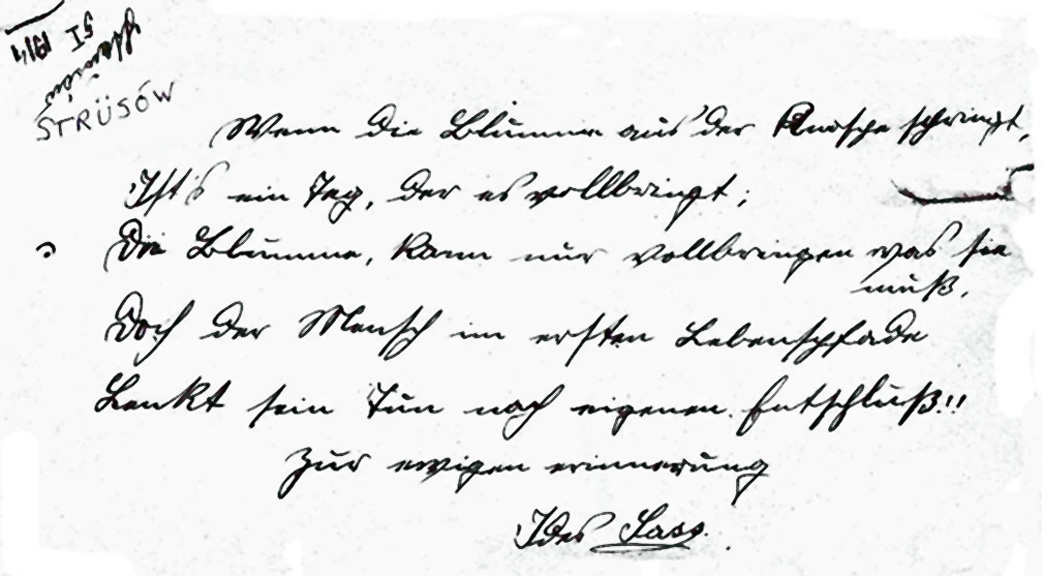 5 I 1914
STRÜSÓW
Wenn die Blumme aus der Knospe springt,
Ist's ein Tag, der es vollbringt;
Die Blumme, kann nur vollbringen was sie
muß,
Doch der Mensch im ersten Lebenspfade
Lenkt sein Tun nach eigenen Entschluß!!
Zur ewigen erinnerung
Ides Sass.